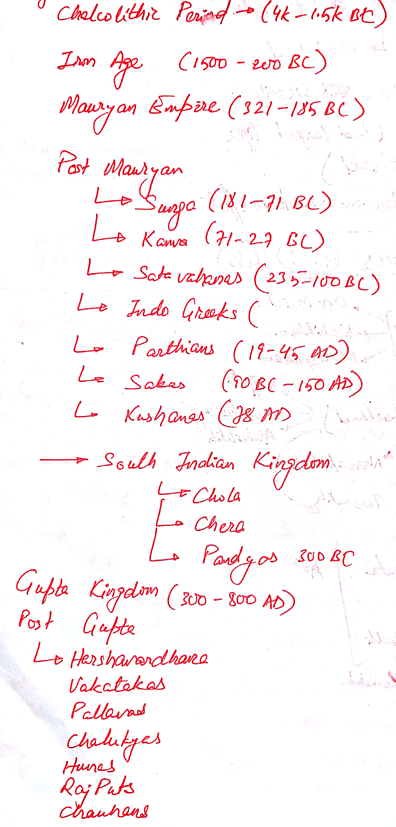 Chalcolithic Period → (4k - 1.5k BC)
Iron Age (1500 - 200 BC)
Mauryan Empire (321-185 BC)
Post Mauryan
↳ Sunga (181-71 BC)
↳ Kanva (71-27 BC)
↳ Satavahanas (235-100 BC)
↳ Indo Greeks (
↳ Parthians (19-45 AD)
↳ Sakas (90 BC - 150 AD)
↳ Kushanas (78 AD
→ South Indian Kingdom
↳ Chola
↳ Chera
↳ Pandyas 300 BC
Gupta Kingdom (300 - 800 AD)
Post Gupta
↳ Harshavardhana
Vakatakas
Pallavas
Chalukyas
Hunas
RajPuts
Chauhans